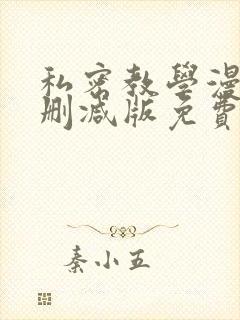 私密教學漫
刪減版免費
秦小五